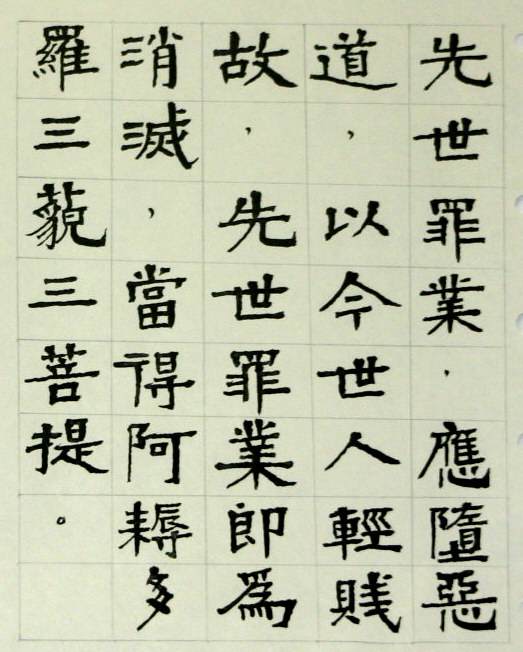 先世罪業，應墮惡
道，以今世人輕賤
故，先世罪業即為
消滅，當得阿耨多
羅三藐三菩提。